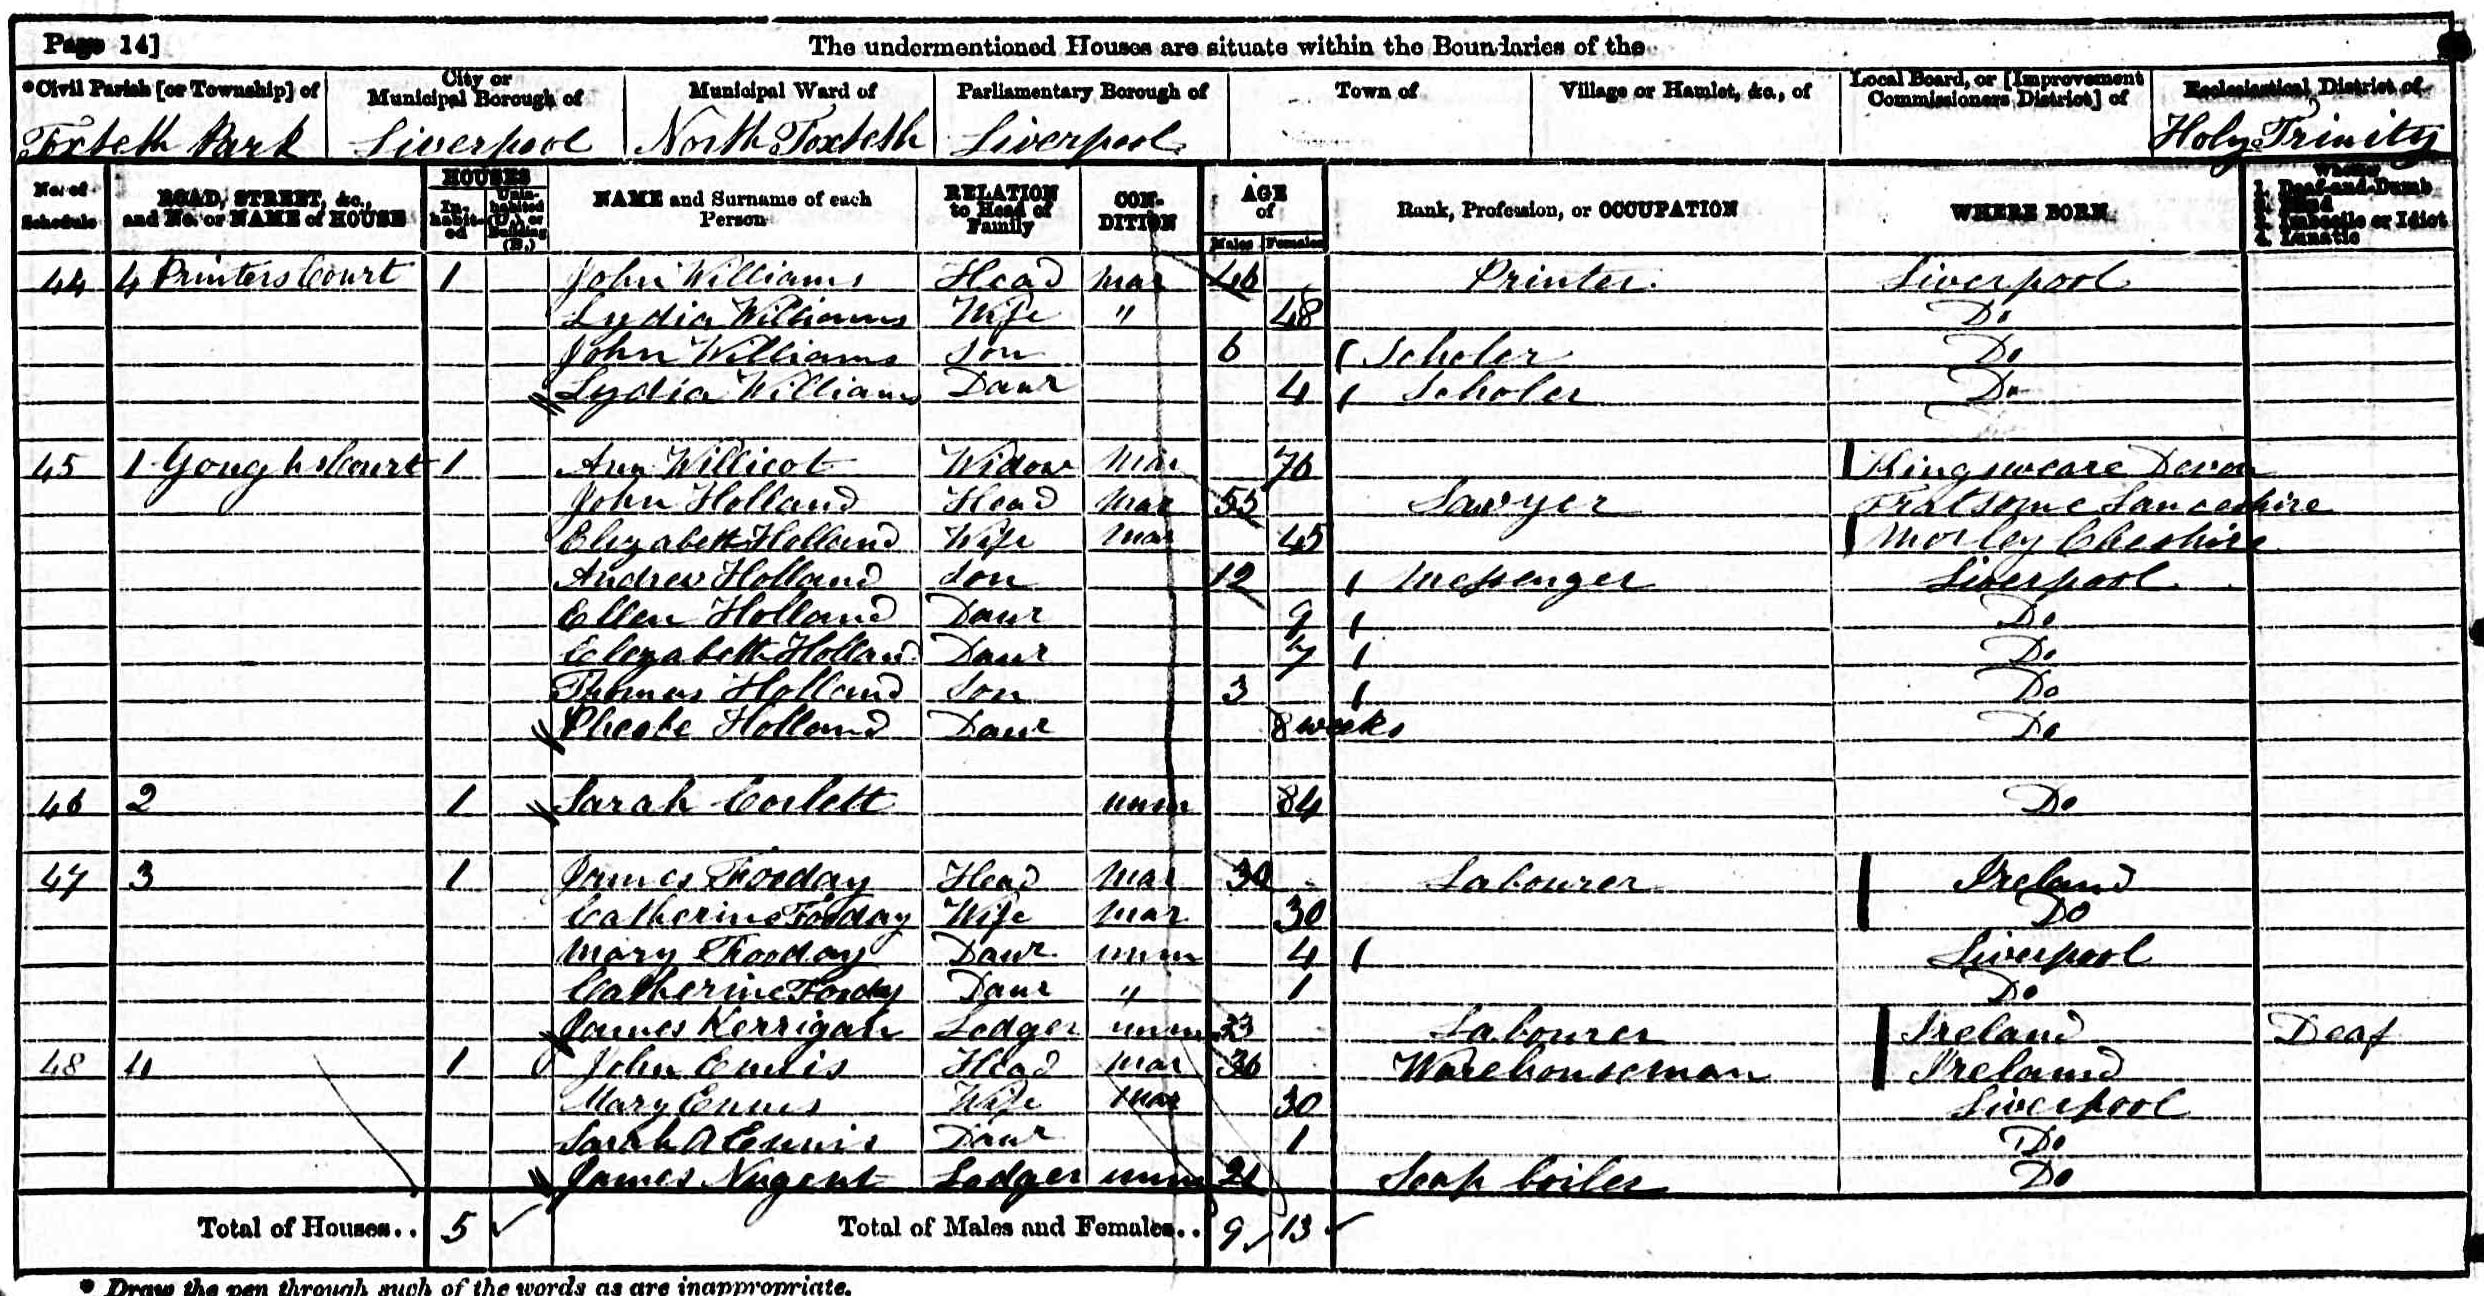 Page 14]
The undermentioned Houses are situate within the Boundaries of the
*Civil Parish [or Township] of City or Municipal Borough of Municipal Ward of Parliamentary Borough of Town of Village or Hamlet, &c., of Local Board, or [Improvement Commissioners District] of Ecclesiastical District of
Toxteth Park Liverpool North Toxteth Liverpool Holy Trinity
No. of Schedule ROAD, STREET, &c., and No. or NAME of HOUSE HOUSES In-habit-ed Unin-habited (U.), or Building (B.) NAME and Surname of each Person RELATION to Head of Family CON-DITION AGE of Males Females Rank, Profession, or OCCUPATION WHERE BORN Whether 1. Deaf-and-Dumb 2. Blind 3. Imbecile or Idiot 4. Lunatic
44 4 Printers Court 1 John Williams Head Mar 46 Printer Liverpool
Lydia Williams Wife " 48 Do
John Williams Son 6 Scholer Do
Lydia Williams Daur 4 Scholer Do
45 1 Goughs Court 1 Ann Willicot Widow Mar 76 Kingsweare Devon
John Holland Head Mar 55 Sawyer Lancashire
Elizabeth Holland Wife Mar 45 Morley Cheshire
Andrew Holland Son 12 Messenger Liverpool
Ellen Holland Daur 9 Do
Elizabeth Holland Daur 7 Do
Thomas Holland Son 3 Do
Pheobe Holland Daur 8 weeks Do
46 2 1 Sarah Corlett unm 84 Do
47 3 1 James Foeday Head Mar 30 Labourer Ireland
Catherine Foeday Wife Mar 30 Do
Mary Foeday Daur unm 4 Liverpool
Catherine Daur " 1 Do
James Kerrigan Lodger unm 33 Labourer Ireland Deaf
48 4 1 John Ennis Head Mar 36 Warehouseman Ireland
Mary Ennis Wife Mar 30 Liverpool
Sarah A Ennis Daur 1 Do
James Nugent Lodger unm 21 Soap boiler Do
Total of Houses.. 5 Total of Males and Females.. 9 13
* Draw the pen through such of the words as are inappropriate.